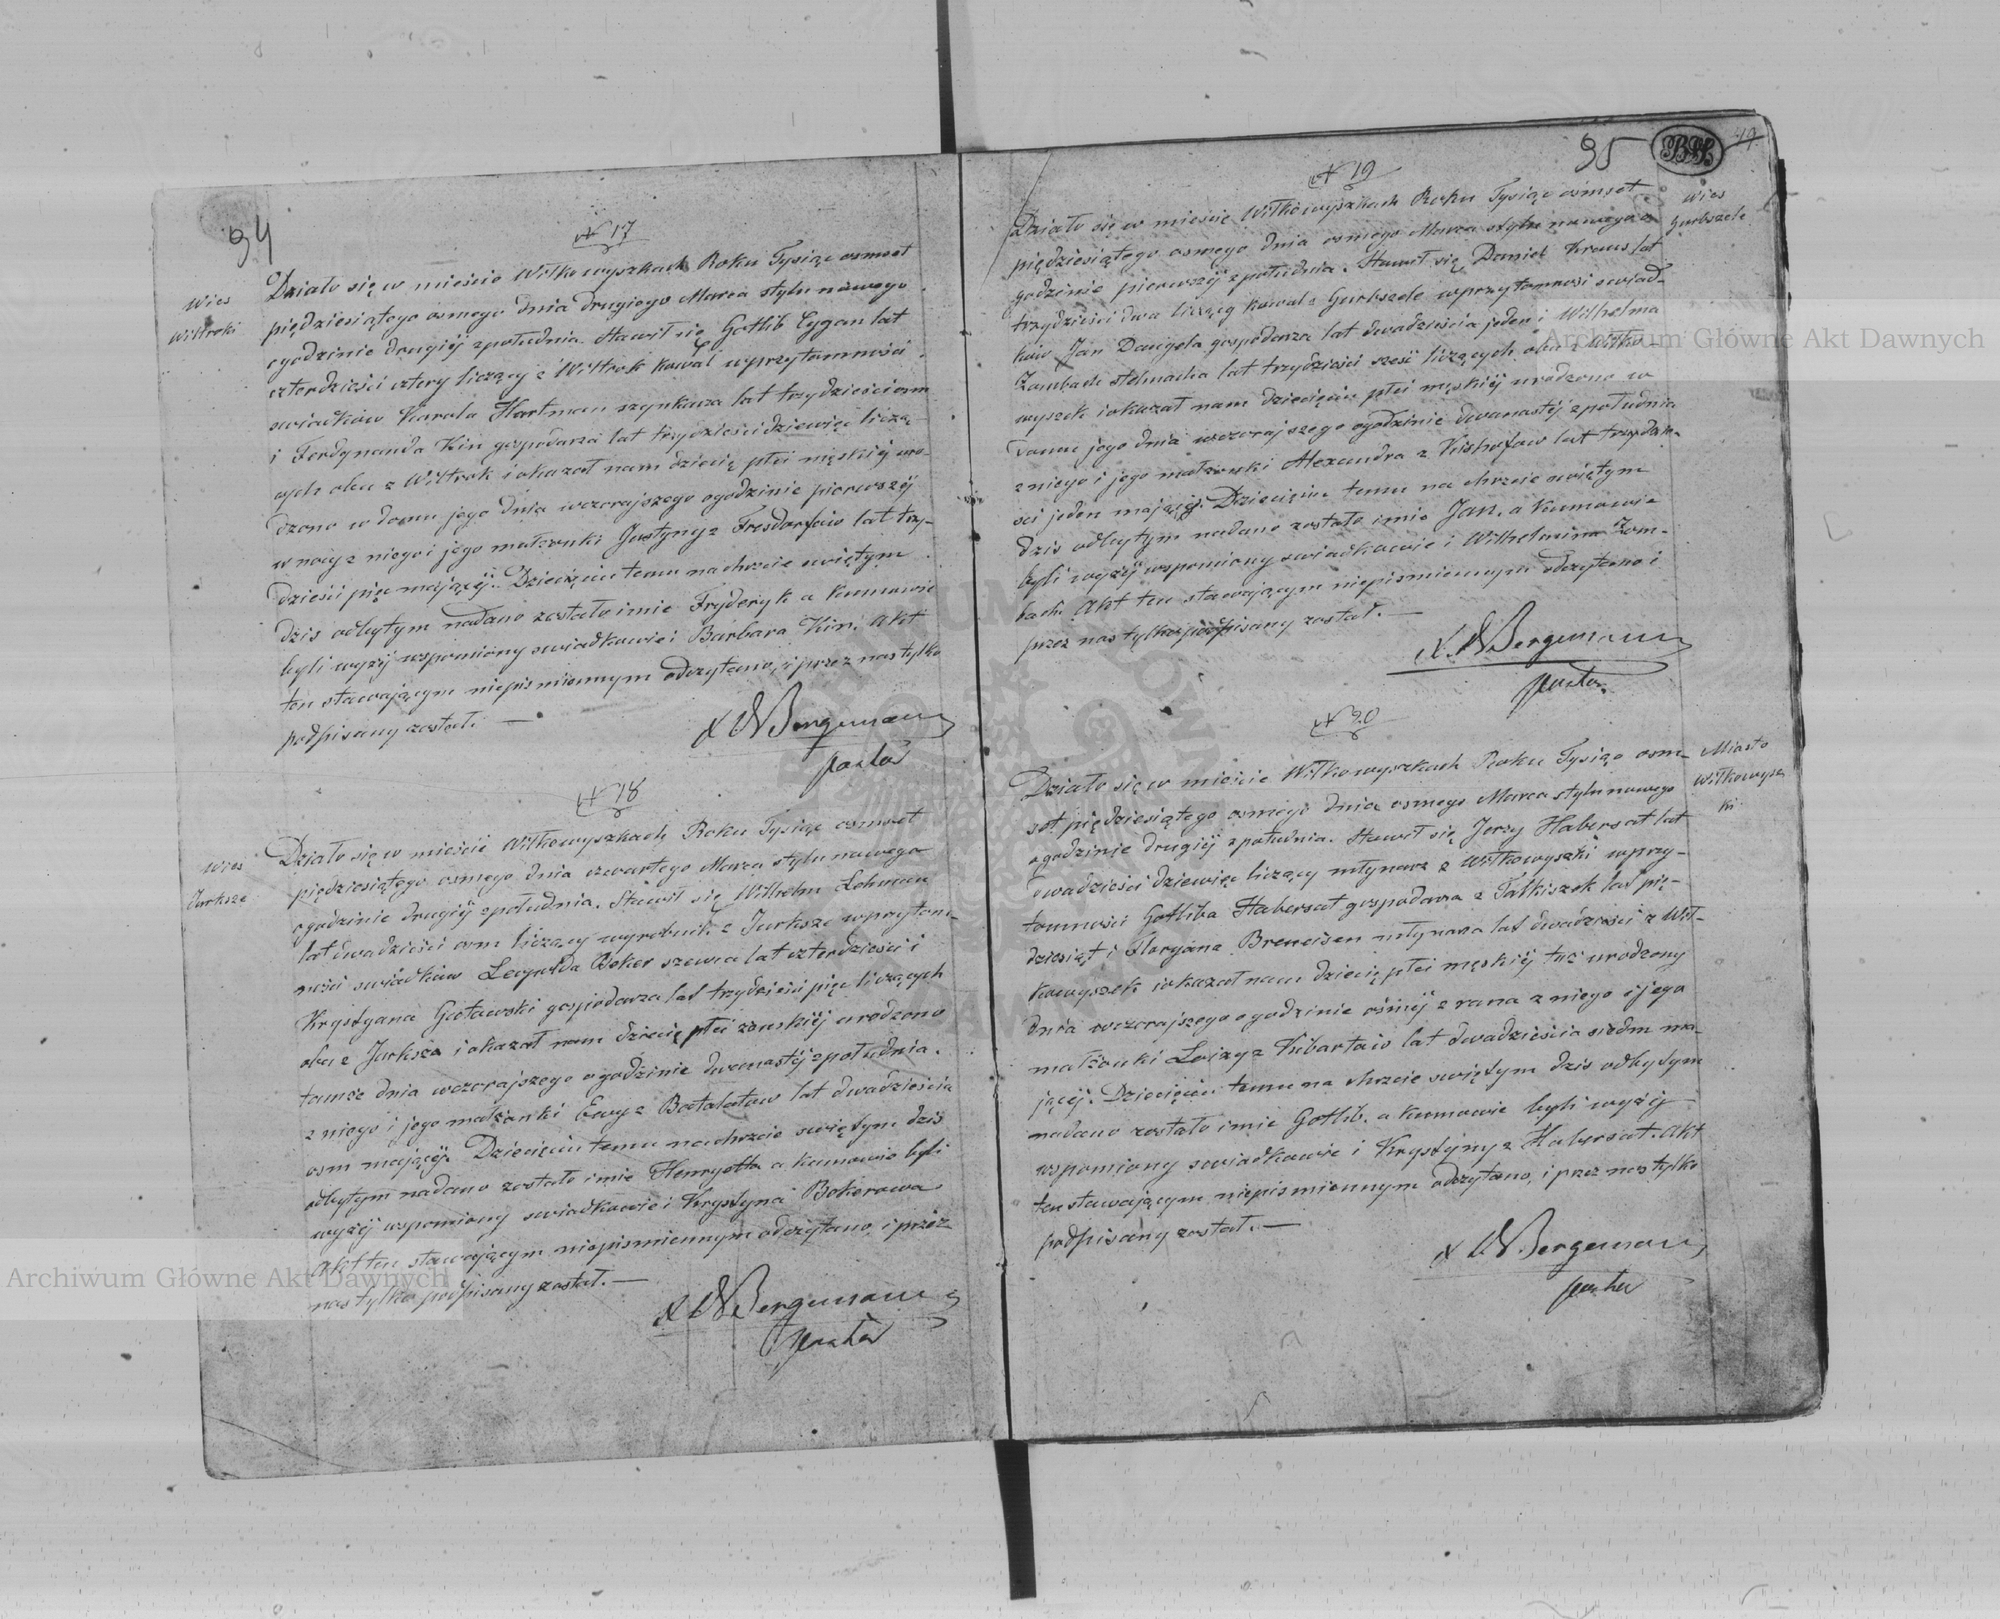 94
N 17
Wies
Wiltroki
Działo się w mieście Wiłkowyszkach Roku Tysiąc osmset
pięćdziesiątego osmego dnia drugiego Marca stylu nowego
ogodzinie drugiéj społudnia. Stawił się Gotlib Cygan lat
czterdzieści cztery liczący z Wiltrok kowal wprzytomności
swiadków Karola Hartman szynkarza lat trzydzieści osm
i Ferdynanda Kin gospodarza lat trzydzieści dziewięć liczą-
cych obu z Wiltrok i okazał nam dziecię płci męskiéj uro-
dzono w domu jego dnia wczorajszego ogodzinie pierwszéj
w nocy z niego i jego małżonki Justyny z lat trzy-
dzieści pięc mającéj. Dziecięciu temu na chrzcie swiętym
dzis odbytym nadano zostało imie Fryderyk a kumowie
byli wyżéj wspomiony swiadkowie i Barbara Kin. Akt
ten stawającym niepismiennym odczytano, i przez nas tylko
podpisany został. —
Bergemann
pastor
N 18
Wies
Jurksze
Działo się w mieście Wiłkowyszkach Roku Tysiąc osmset
pięćdziesiątego osmego dnia czwartego Marca stylu nowego
ogodzinie drugiéj społudnia. Stawił się Wilhelm Lehman
lat dwadzieści osm liczący wyrobnik z Jurksze wprzytom-
ności swiadków Leopolda Boker szewca lat czterdzieści i
Krystyana gospodarza lat trzydzieści pięc liczących
obu z Jurksza i okazał nam dziecię płci zenskiéj urodzono
tamże dnia wczorajszego ogodzinie dwunastéj społudnia.
z niego i jego małżonki Ewy z lat dwadzieścia
osm mającéj. Dziecięciu temu na chrzcie swiętym dzis
odbytym nadano zostało imie Henryetta a kumowie byli
wyżéj wspomiony swiadkowie i Krystyna Bokerowa
Akt ten stawającym niepismiennym odczytano, i przez
nas tylko podpisany został. —
Bergemann
pastor
95
49
N 19
Wies
Gurbszele
Działo się w mieście Wiłkowyszkach Roku Tysiąc osmset
pięćdziesiątego osmego dnia osmego Marca stylu nowego o
godzinie pierwszéj społudnia. Stawił się Daniel Kraus lat
trzydzieści dwa liczący kowal z Gurbszele wprzytomnosi swiad-
ków Jan Daugela gospodarza lat dwadzieścia jeden i Wilhelma
Zombach stelmacha lat trzydzieści sześć liczących obu z Wiłko-
wyszek i okazał nam dziecięciu płci męskiéj urodzono w
domu jego dnia wczorajszego ogodzinie dwanastéj społudnia
z niego i jego małżonki Alexandra z lat
ści jeden mającéj. Dziecięciu temu na chrzcie swiętym
dzis odbytym nadano zostało imie Jan. a kumowie
byli wyżéj wspomiony swiadkowie i Wilhelmina Zom-
bach. Akt ten stawającym niepismiennym odczytano i
przez nas tylko podpisany został. —
Bergemann
pastor
N 20
Miasto
Wiłkowysz
ki
Działo się w mieście Wiłkowyszkach Roku Tysiąc osm-
set pięćdziesiątego osmego dnia osmego Marca stylu nowego
ogodzinie drugiéj społudnia. Stawił się Jerzy Habersat lat
dwadzieści dziewięc liczący młynarz z Wiłkowyszki wprzy-
tomności Gotliba Habersat gospodarza z lat pię-
dziesiąt i Floryana młynarza lat dwadzieści z Wił-
kowyszek i okazał nam dziecię płci męskiéj tuż urodzony
dnia wczorajszego ogodzinie ósméj z rana z niego i jego
małżonki Loizy z lat dwadzieścia siedm ma-
jącéj. Dziecięciu temu na chrzcie swiętym dzis odbytym
nadano zostało imie Gotlib. a kumowie byli wyżéj
wspomiony swiadkowie i Krystyny z Habersat. Akt
ten stawającym niepismiennym odczytano, i przez nas tylko
podpisany został. —
Bergemann
pastor
Archiwum Główne Akt Dawnych
Archiwum Główne Akt Dawnych